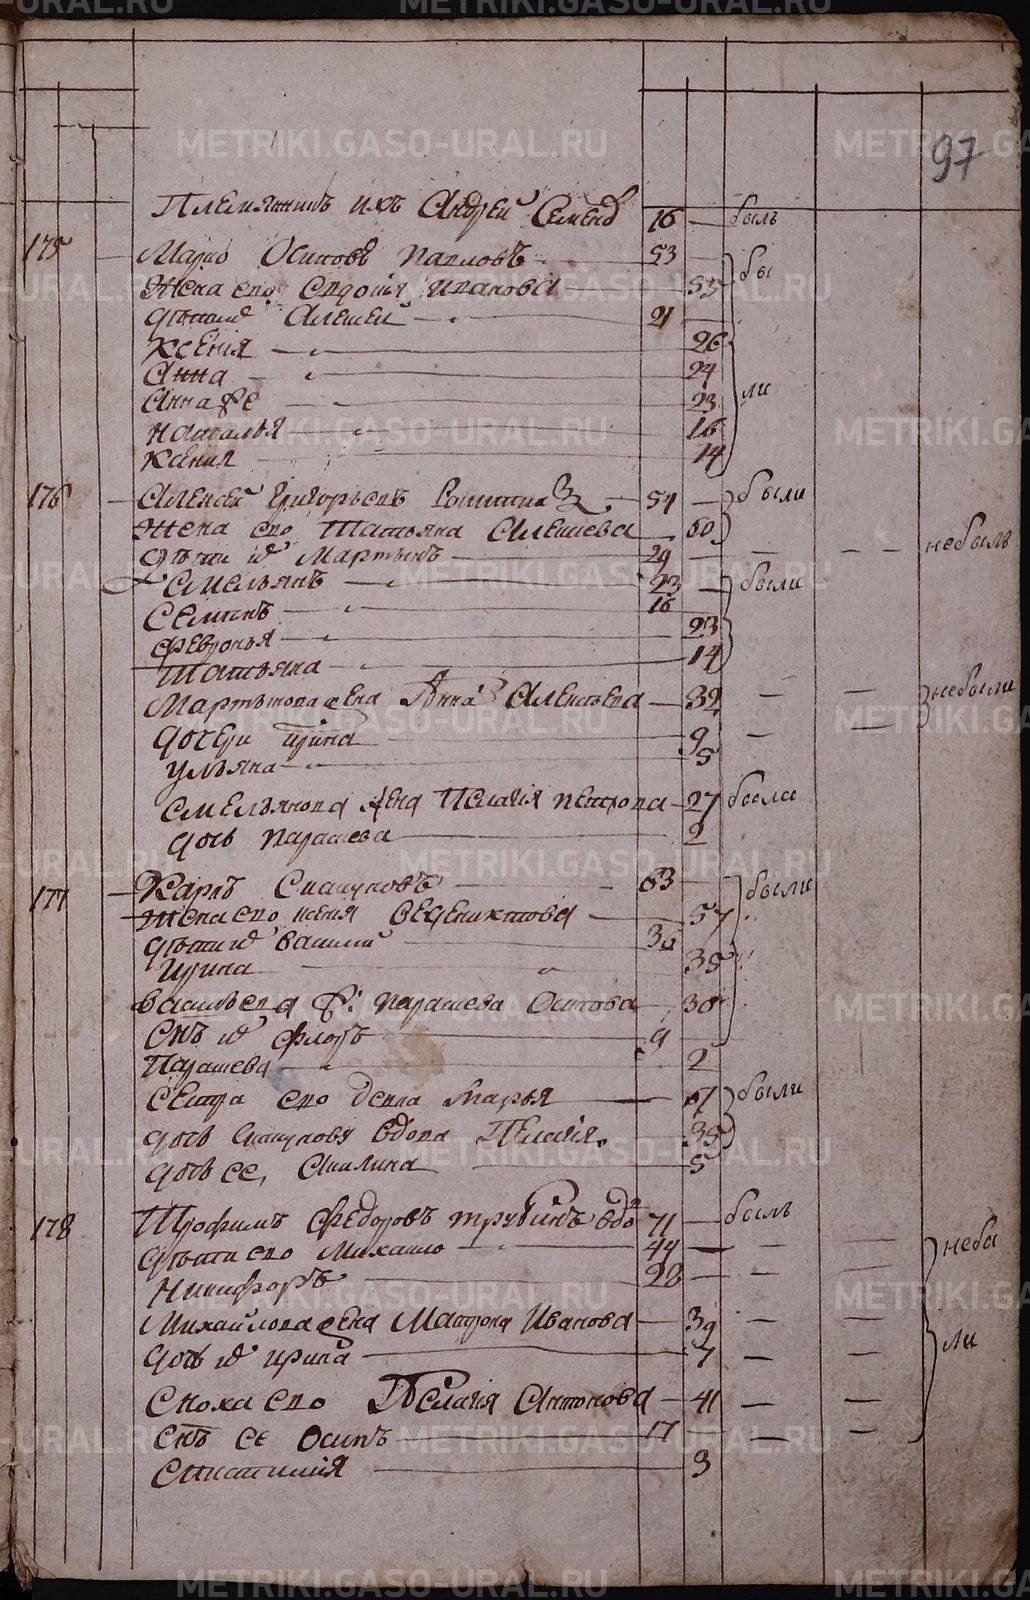 METRIKI.GASO-URAL.RU
97
Племянникъ ихъ Андрей Семено 16 — былъ
175 — Марко Осиповъ Павловъ 53 — бы
Жена его Евдокія Иванова 55
дѣти Алексей 21
Ксенія 26 ли
Анна 24
Анна же 23
Наталья 16
14
176 — Алексей Григорьевъ 51 — были
Жена его Татьяна Алексеева 50
дѣти их Мартынъ 29 — — — небылъ
Емельянъ 23 — были
Семенъ 16
Февронья 23
Татьяна 14
Мартынова жена Анна Алексѣева — 32 — — небыли
дочери Ирина 9 — —
Ульяна 5
Емельянова жена Пелагія Петрова — 27 была
дочь Парасева 2
177 — Карпъ 63 — были
Жена его 57
дѣти их Василий 36
Ирина 35
Васильева ж: Парасева Осипова 30
Снъ их Флоръ 9
Парасева 2
Сестра его девка Марья — 67 были
дочь вдова Пелагія 35
дочь ее, Акилина 5
178 Трофимъ Федоровъ Трубинъ вдо 71 — былъ
дѣти его Михайло 44 — — — небы
Никифоръ 28 — — — ли
Михайлова жена Матрона Иванова — 39 — —
дочь их Ирина 7 — —
Сноха его Пелагія Антонова — 41 — —
Снъ ее Осипъ 17 — — —
3